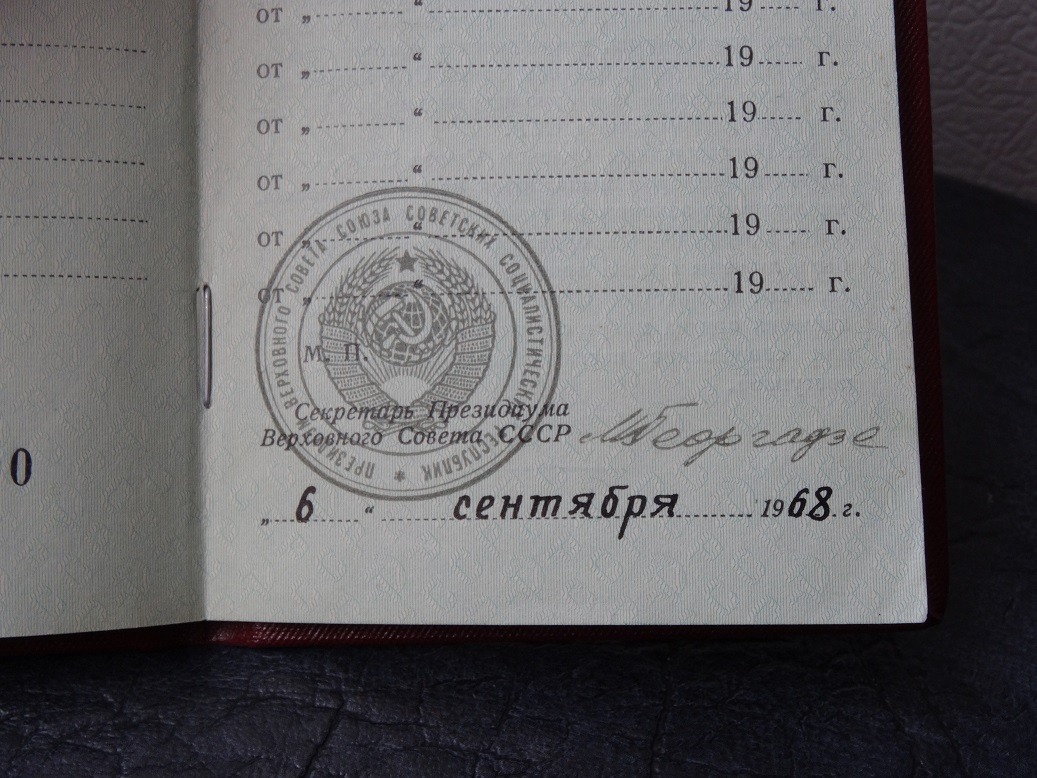 от „ “ 19 г.
от „ “ 19 г.
от „ “ 19 г.
от „ “ 19 г.
от „ “ 19 г.
от „ “ 19 г.
М. П.
ПРЕЗИДИУМ ВЕРХОВНОГО СОВЕТА СОЮЗА СОВЕТСКИХ СОЦИАЛИСТИЧЕСКИХ РЕСПУБЛИК
Секретарь Президиума
Верховного Совета СССР МГеоргадзе
0
„ 6 “ сентября 1968 г.